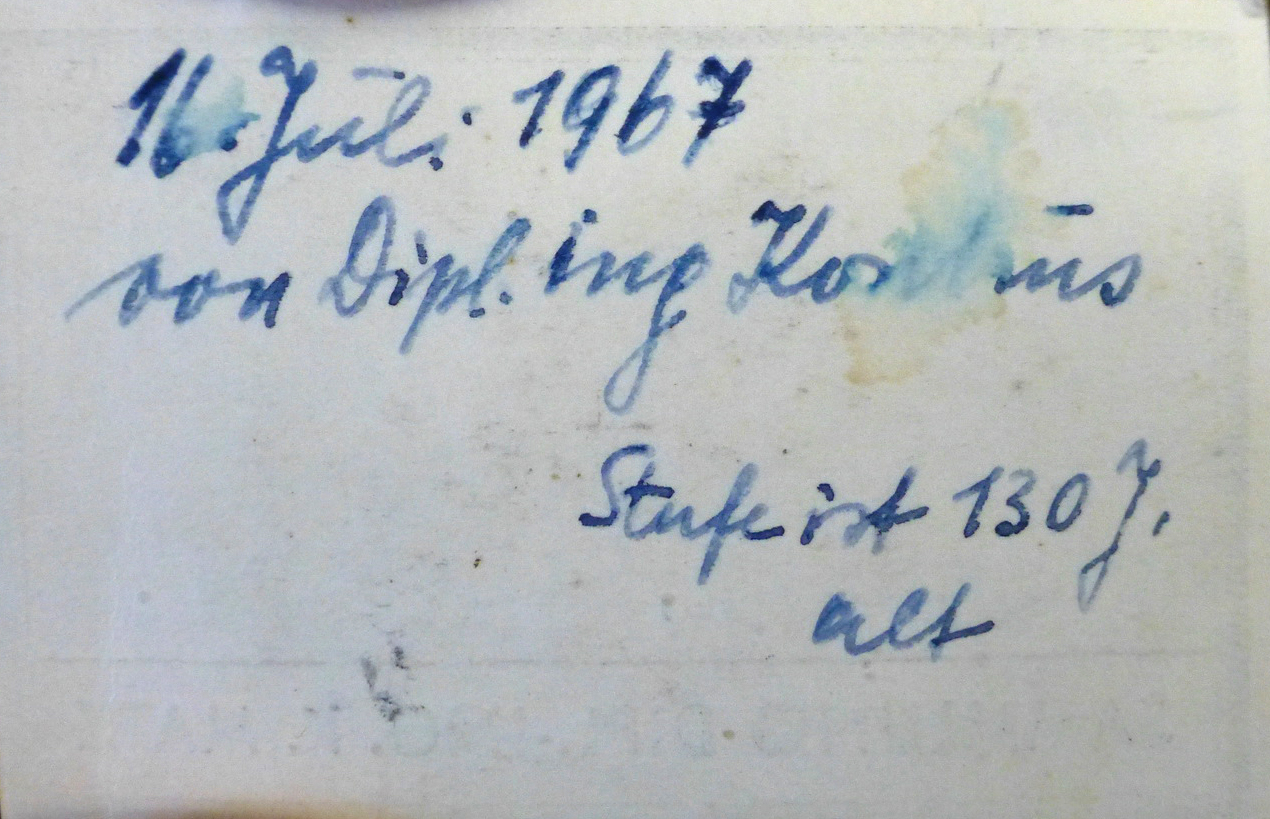 16. Juli 1967
von Dipl. ing
Stufe ist 130 J.
alt